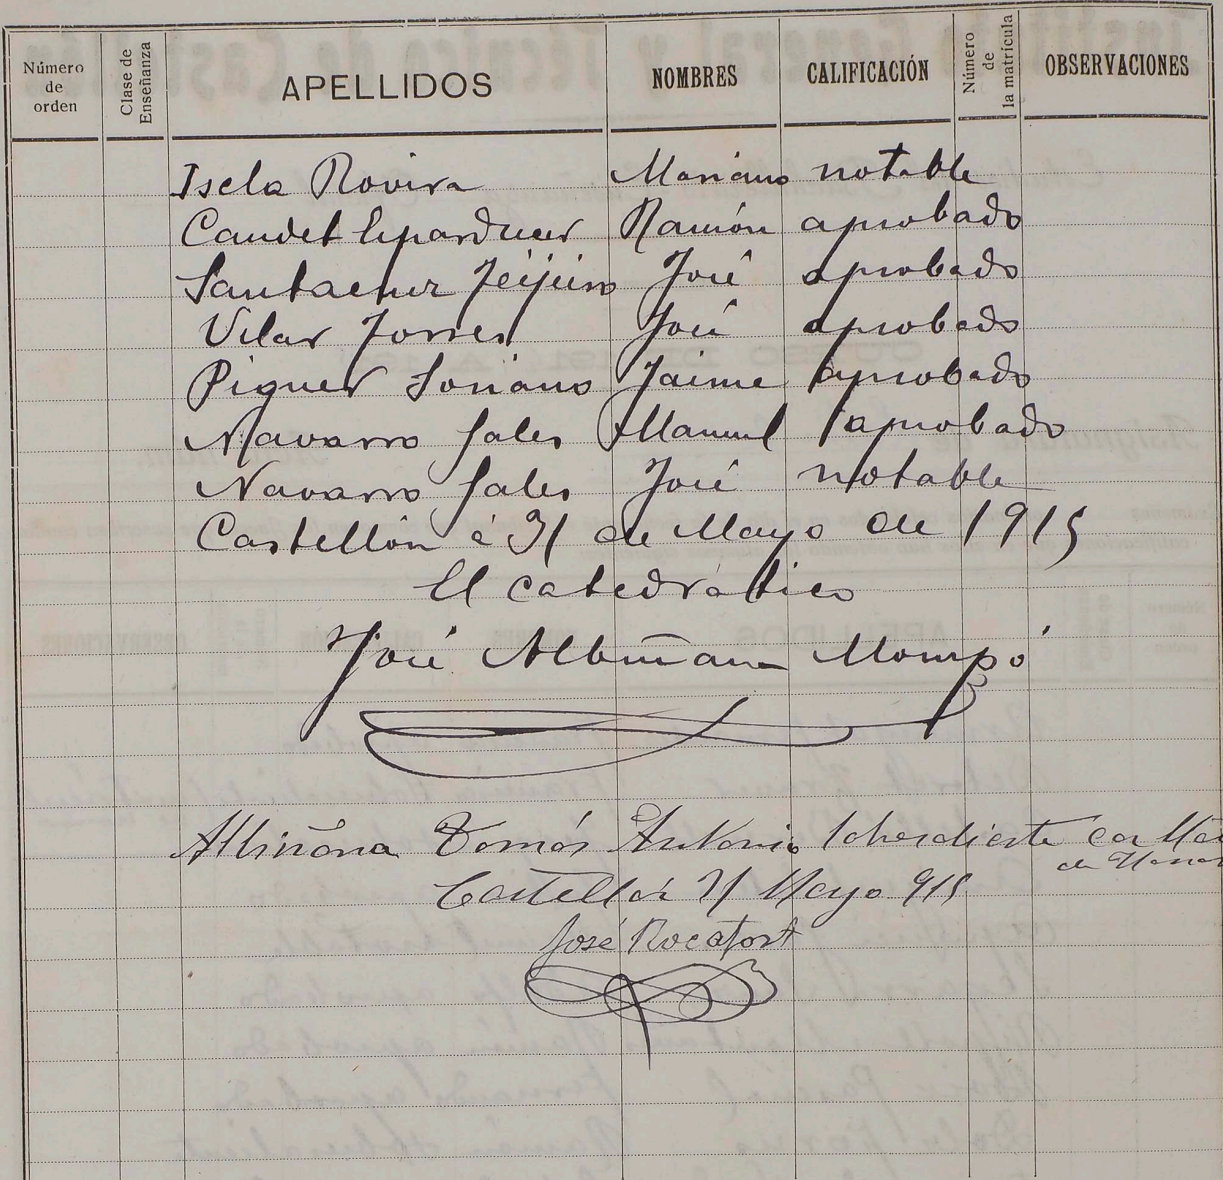 Número de orden Clase de Enseñanza APELLIDOS NOMBRES CALIFICACIÓN Número de la matrícula OBSERVACIONES
Isela Rovira Mariano notable
Caudet Ramón aprobado
Santacruz Teijeiro José aprobado
Vilar Torres José aprobado
Piquer Soriano Jaime aprobado
Navarro Sales Manuel aprobado
Navarro Sales José notable
Castellón á 31 de Mayo de 1915
El catedrático
José Albiñana Mompó
Albiñana Tomás Antonio Sobresaliente con
de Honor
Castellón 31 Mayo 915
José Rocafort